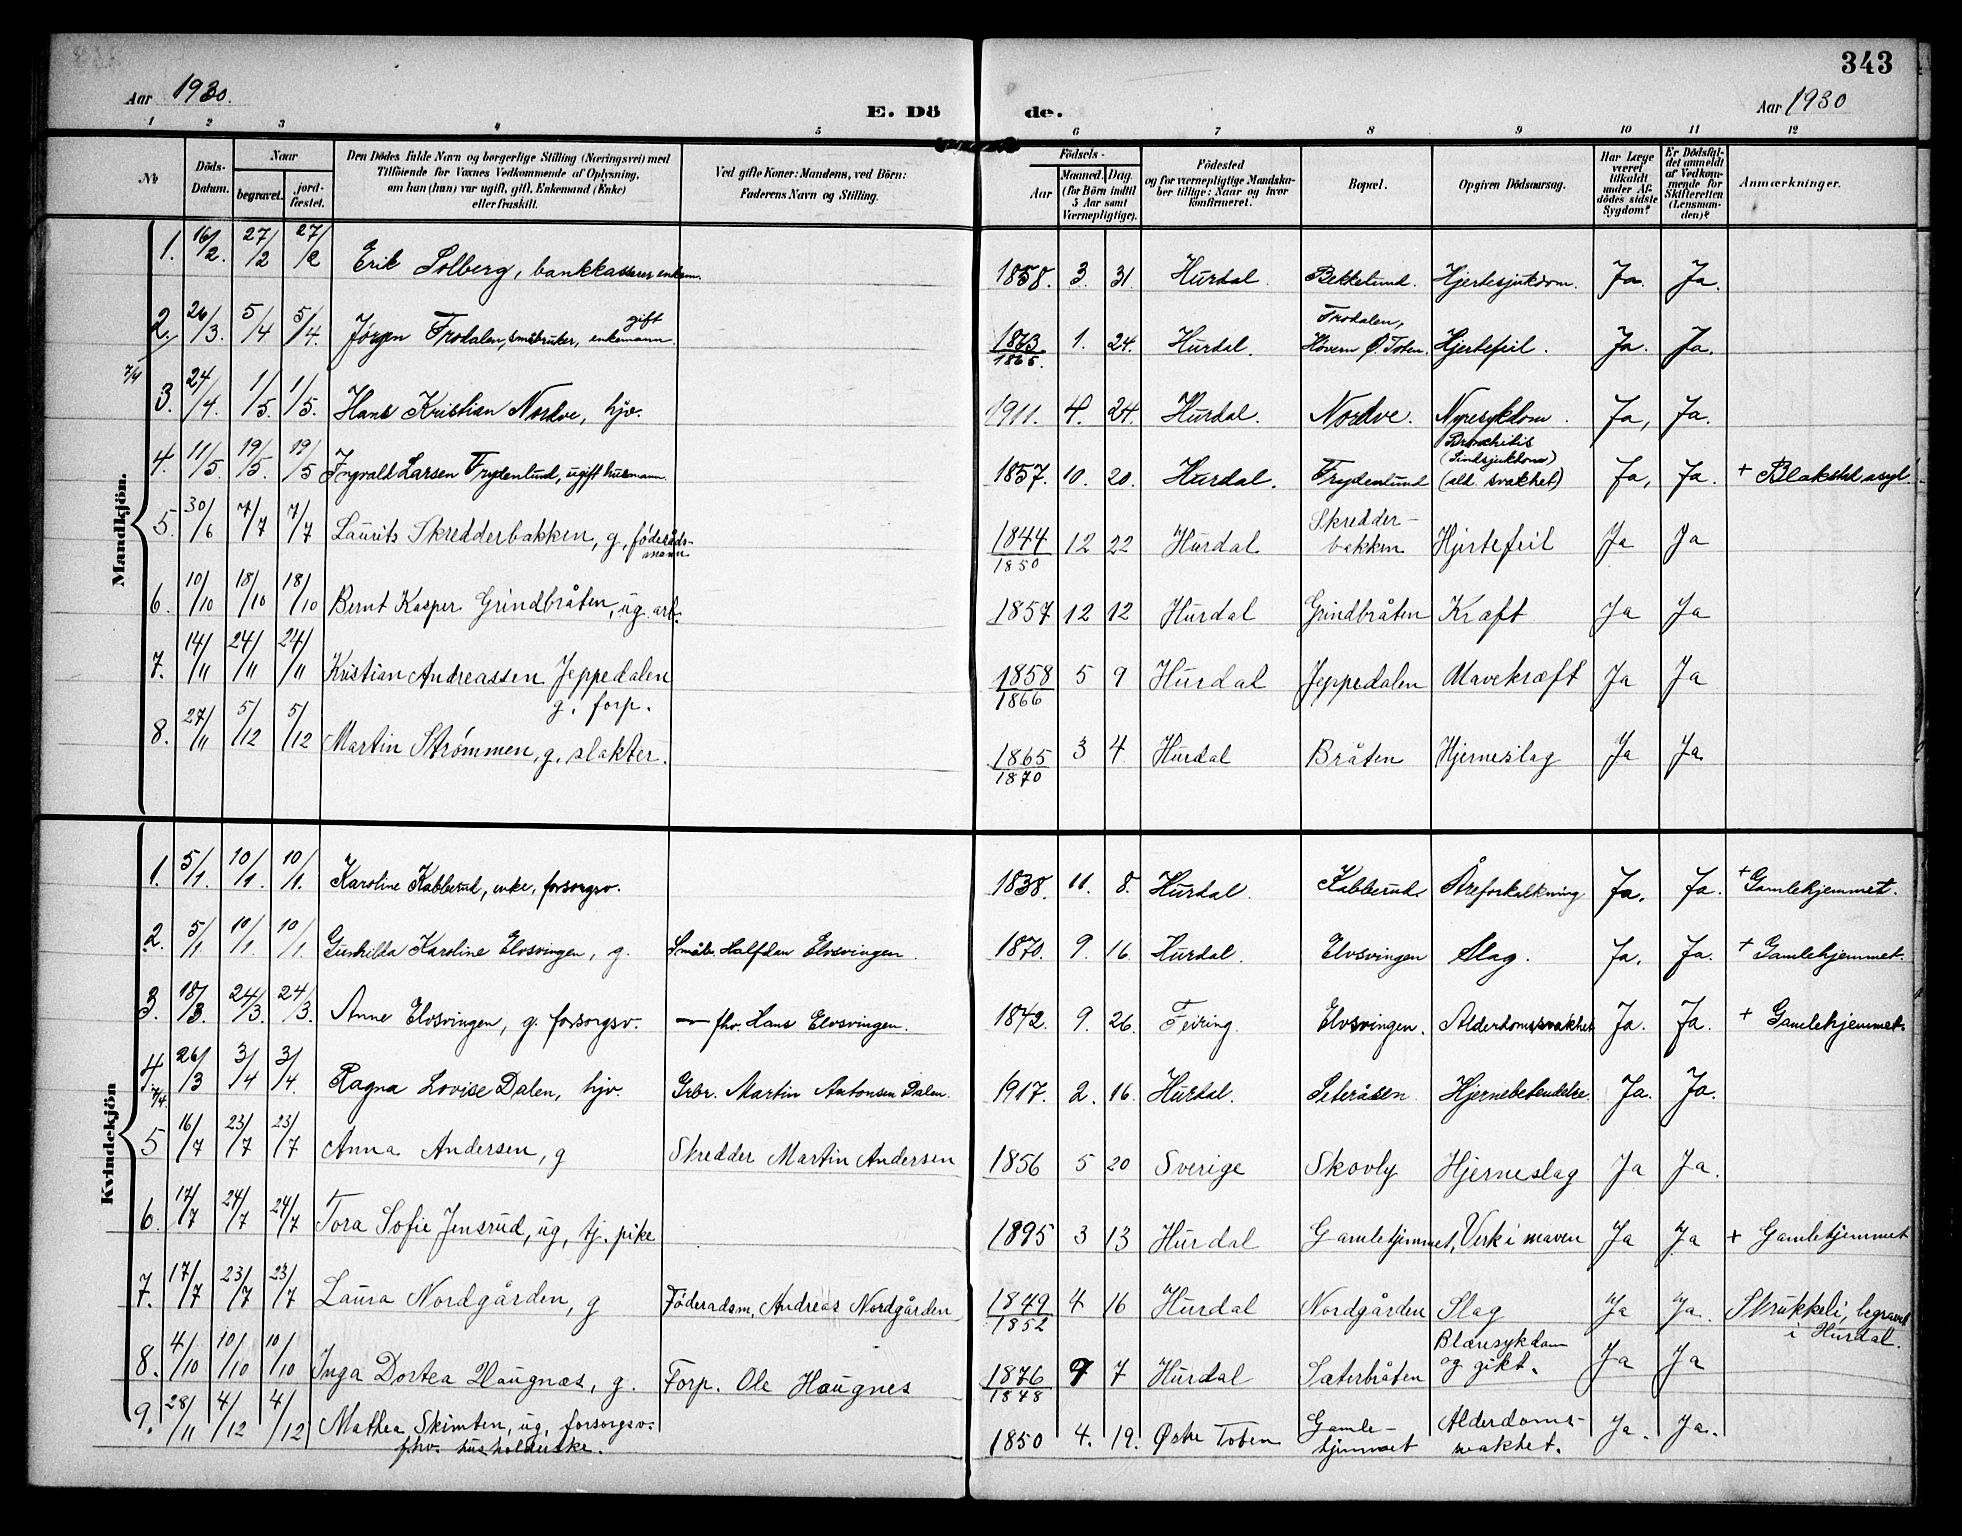 343
Aar 1930.
E. Dö
de.
Aar 1930
1 2 3 4 5 6 7 8 9 10 11 12
No
Döds-
Datum.
Naar
begravet.
jord-
fæstet.
Den Dödes fulde Navn og borgerlige Stilling (Næringsvei) med
Tilföiende for Voxnes Vedkommende af Oplysning,
om han (hun) var ugift, gift, Enkemand (Enke)
eller fraskilt.
Ved gifte Koner: Mandens, ved Börn:
Faderens Navn og Stilling.
Födsels-
Aar
Maaned. Dag.
(for Börn indtil
5 Aar samt
Værnepligtige).
Födested
og for værnepligtige Mandska-
ber tillige: Naar og hvor
konfirmeret.
Bopæl.
Opgiven Dödsaarsag.
Har Læge
været
tilkaldt
under Af-
dödes sidste
Sygdom?
Er Dödsfal-
det anmeldt
af Vedkom-
mende for
Skifteretten
(Lensman-
den)?
Anmærkninger.
Mandkjön.
1. 16/2. 27/2 27/2 Erik Solberg, bankkasserer enkem. 1858. 3. 31. Hurdal. Bekkelund. Hjertesjukdom. Ja. Ja.
2. 26/3. 5/4 5/4. Jørgen Frodalen, småbruker, enkemann. gift 1863/1865. 1. 24. Hurdal. Frodalen, Hövern Ø. Toten. Hjertefeil. Ja. Ja.
7/4
3. 24/4. 1/5. 1/5. Hans Kristian Nordve, hjv. 1911. 4. 24. Hurdal. Nordve. Nyresykdom. Ja, Ja.
4. 11/5. 19/5. 19/5 Ingvald Larsen Frydenlund, ugift husmann. 1857. 10. 20. Hurdal. Frydenlund Bronchitis (Sindsjukdom) (ald. svakhet) Ja, Ja. + Blakstad asyl.
5. 30/6 7/7 7/7 Laurits Skredderbakken, g, føderåds-
mann. 1844/1850 12 22 Hurdal Skredder-
bakken Hjertefeil Ja Ja
6. 10/10 18/10 18/10 Bernt Kasper Grindbråten, ug. arb. 1857 12 12 Hurdal Grindbråten Kræft Ja Ja
7. 14/11 24/11 24/11 Kristian Andreassen Jeppedalen
g. forp. 1858/1866 5 9 Hurdal Jeppedalen Mavekræft Ja Ja
8. 27/11 5/12 5/12 Martin Strømmen, g, slakter. 1865/1870 3 4 Hurdal Bråten Hjerneslag Ja Ja
Kvindekjön
1. 5/1. 10/1. 10/1. Karoline Kabberud, enke, forsorgsv. 1838. 11. 8. Hurdal. Kabberud. Åreforkalkning Ja. Ja. + Gamlehjemmet.
2. 5/1 10/1. 10/1. Gunhilda Karoline Elvsvingen, g. Småbr. Halfdan Elvsvingen. 1870. 9. 16. Hurdal. Elvsvingen Slag. Ja. Ja. + Gamlehjemmet.
3. 18/3. 24/3. 24/3. Anne Elvsvingen, g. forsorgsv. — fhv. Hans Elvsvingen. 1842. 9. 26. Feiring. Elvsvingen. Alderdomssvakhet Ja. Ja. + Gamlehjemmet.
4. 7/4. 26/3 3/4 3/4. Ragna Lovise Dalen, hjv. Grbr. Martin Antonsen Dalen. 1917. 2. 16. Hurdal. Seteråsen Hjernebetendelse. Ja. Ja.
5 16/7 23/7 23/7 Anna Andersen, g Skredder Martin Andersen 1856 5 20 Sverige Skovly Hjerneslag Ja Ja.
6. 17/7 24/7 24/7 Tora Sofie Jensrud, ug, tj. pike 1895 3 13 Hurdal Gamlehjemmet, Verk i maven Ja Ja + Gamlehjemmet
7. 17/7 23/7 23/7 Laura Nordgården, g Föderadsm. Andreas Nordgården 1849/1852 4 16 Hurdal Nordgården Slag Ja Ja. Skrukkeli, begravet
i Hurdal.
8. 4/10 10/10 10/10 Inga Dortea Haugnæs, g. Forp. Ole Haugnes 1876/1848 9 7 Hurdal Sæterbråten Blæresykdom
og gikt. Ja Ja
9. 28/11 4/12 4/12 Mathea Skimten, ug, forsorgsv.
fhv. husholderske. 1850 4. 19. Østre Toten Gamle-
hjemmet Alderdoms-
svakhet. Ja. Ja.